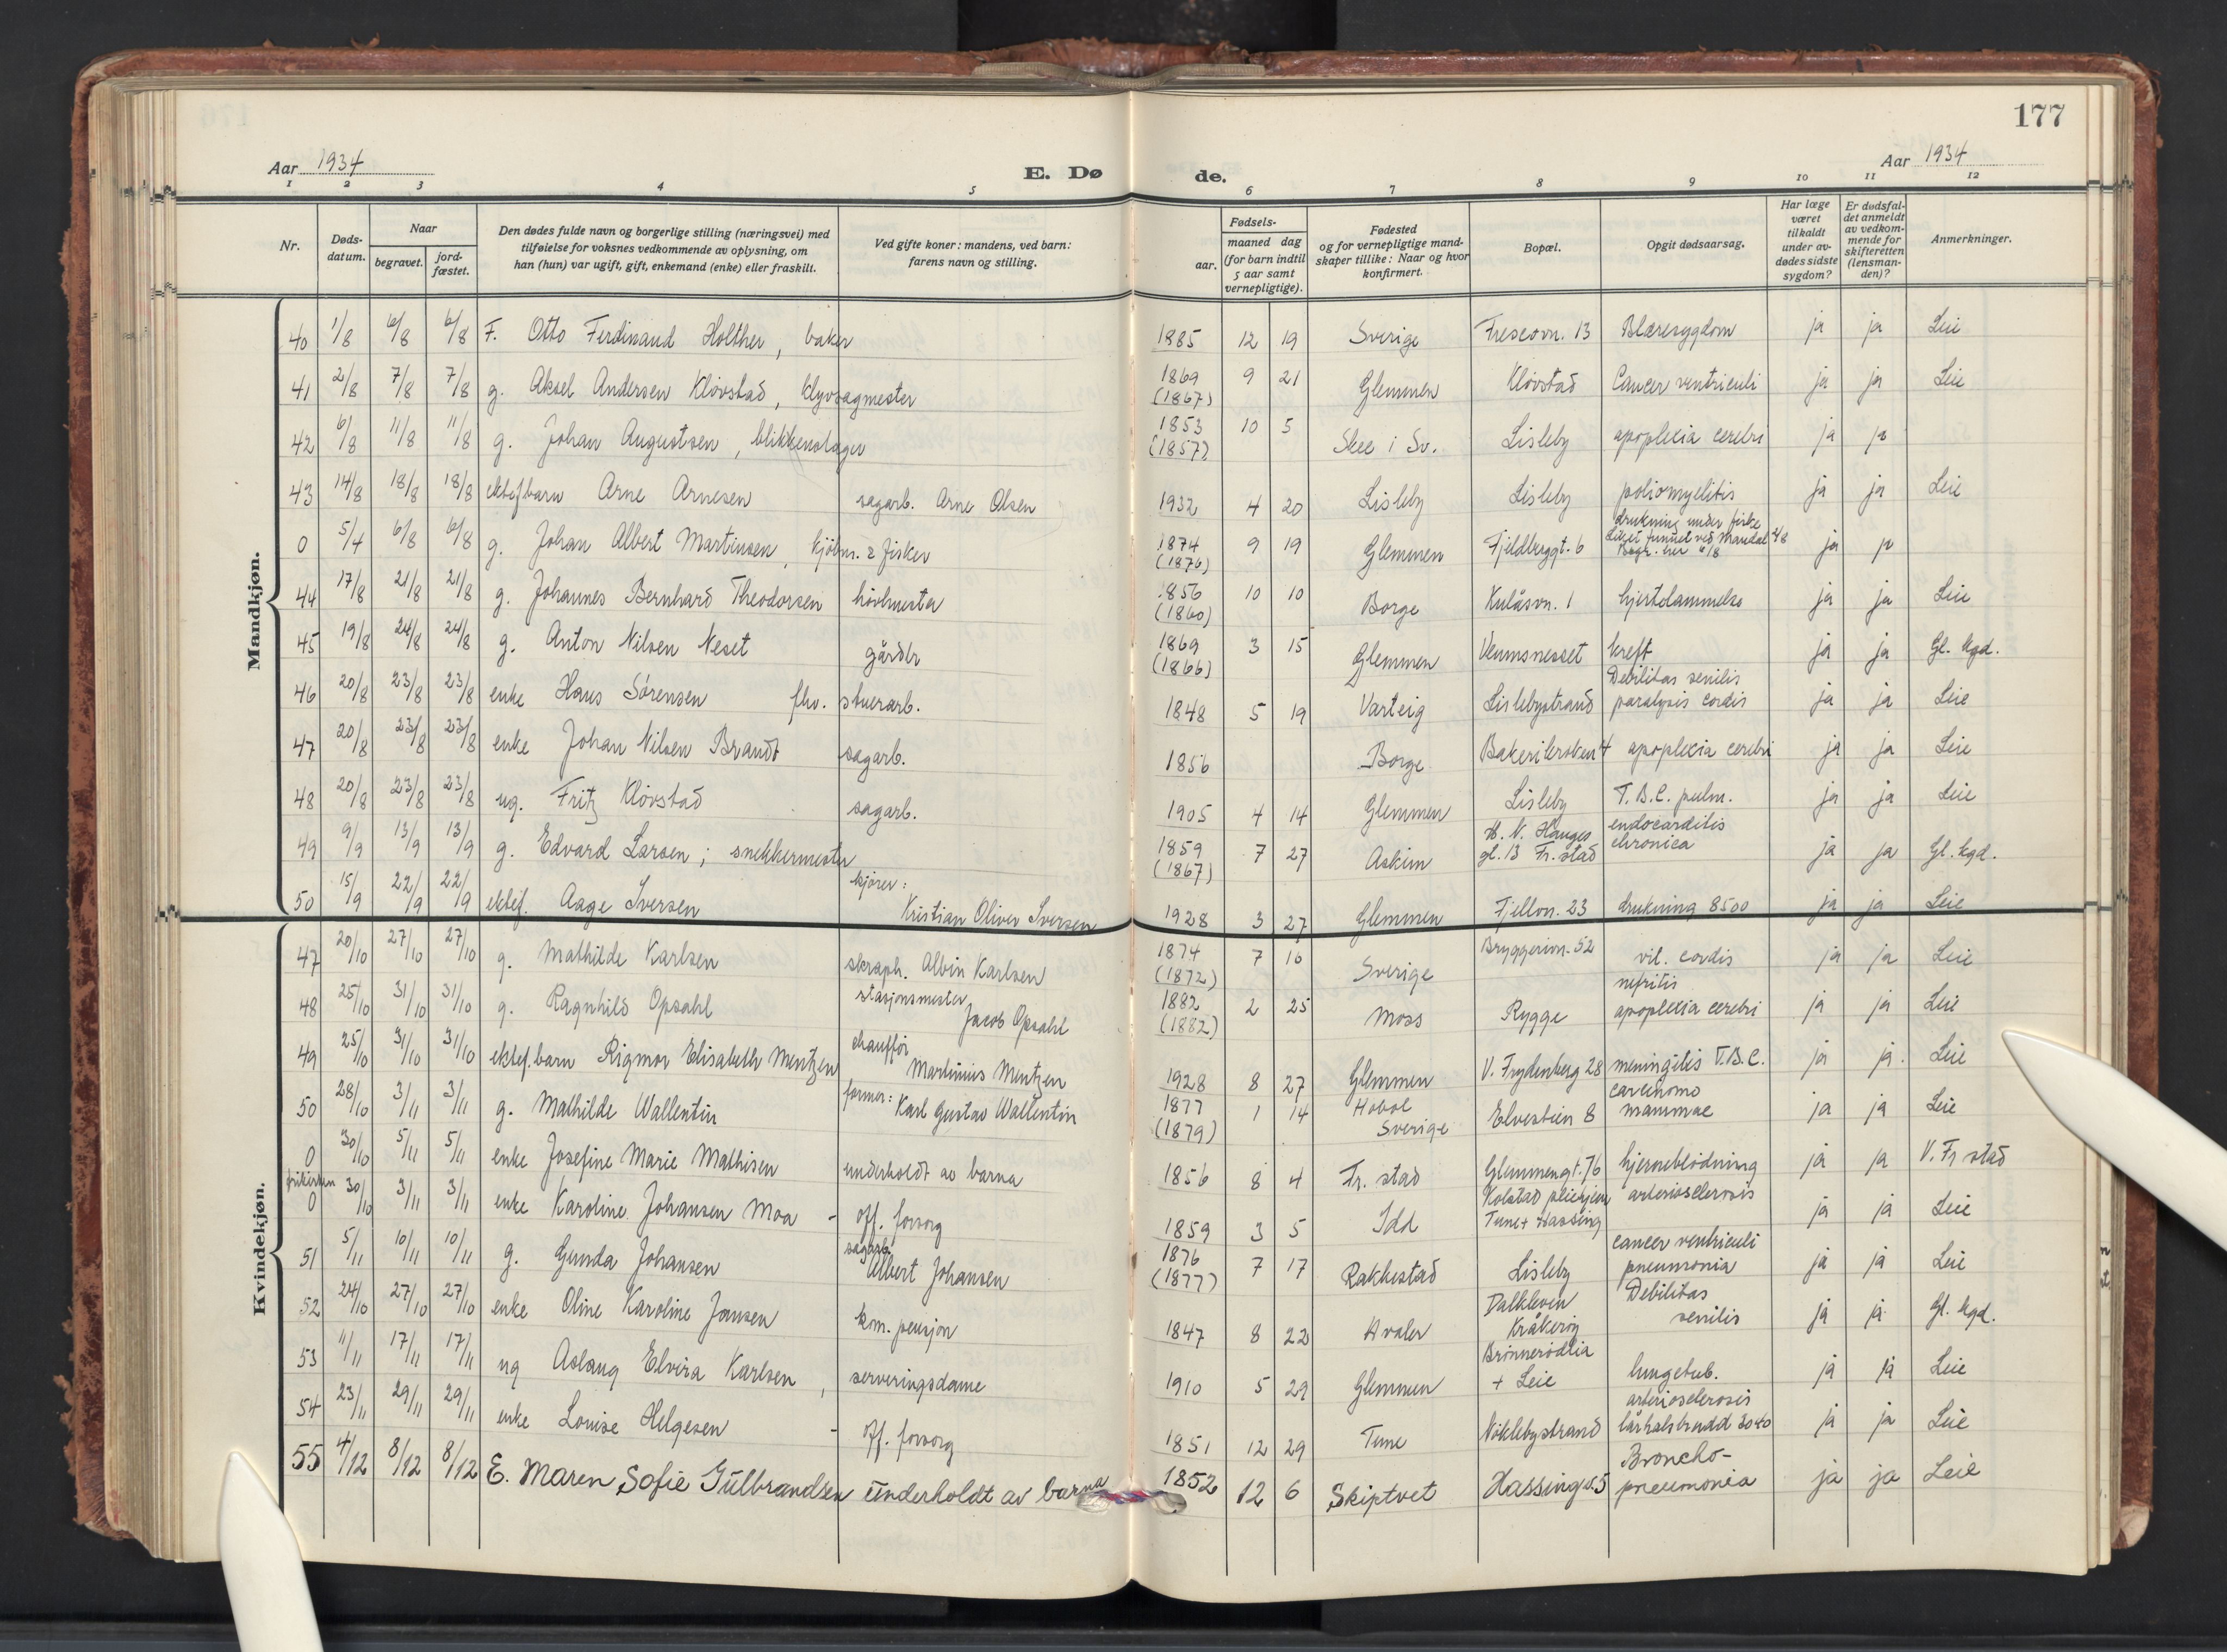 177
Aar 1934
E. Dø
de.
Aar 1934
1 2 3 4 5 6 7 8 9 10 11 12
Nr.
Døds-
datum.
Naar
begravet.
jord-
fæstet.
Den dødes fulde navn og borgerlige stilling (næringsvei) med
tilføielse for voksnes vedkommende av oplysning, om
han (hun) var ugift, gift, enkemand (enke) eller fraskilt.
Ved gifte koner: mandens, ved barn:
farens navn og stilling.
Fødsels-
aar.
maaned dag
(for barn indtil
5 aar samt
vernepligtige).
Fødested
og for vernepligtige mand-
skaper tillike: Naar og hvor
konfirmert.
Bopæl.
Opgit dødsaarsag.
Har læge
været
tilkaldt
under av-
dødes sidste
sygdom?
Er dødsfal-
det anmeldt
av vedkom-
mende for
skifteretten
(lensman-
den)?
Anmerkninger.
Mandkjøn.
40 1/8 6/8 6/8 F. Otto Ferdinand Holther, baker 1885 12 19 Sverige 13 Blæresygdom ja ja Leie
41 2/8 7/8 7/8 g. Aksel Andersen Kløvstad, klyvsagmester 1869 (1867) 9 21 Glemmen Kløvstad Cancer ventriculi ja ja Leie
42 6/8 11/8 11/8 g. Johan Augustsen, blikkenslager 1853 (1857) 10 5 Skee i Sv. Lisleby apoplexia cerebri ja ja
43 14/8 18/8 18/8 ektef barn Arne Arnesen sagarb. Arne Olsen 1932 4 20 Lisleby Lisleby poliomyelitis ja ja Leie
0 5/4 6/8 6/8 g. Johan Albert Martinsen, kjøbm. & fisker 1874 (1876) 9 19 Glemmen Fjeldberggt. 6 drukning under fiske
Liket funnet ved Mandal 2/8
Begr. her 6/8 ja ja
44 17/8 21/8 21/8 g. Johannes Bernhard Theodorsen høvlmester 1856 (1860) 10 10 Borge Kulåsvn. 1 hjertelammelse ja ja Leie
45 19/8 24/8 24/8 g. Anton Nilsen Neset gårdbr 1869 (1866) 3 15 Glemmen Veumsnesset kreft ja ja Gl. kgd.
46 20/8 23/8 23/8 enke Hans Sørensen fhv. stuerarb. 1848 5 19 Varteig Lislebystrand Debilitas senilis
paralysis cordis ja ja Leie
47 20/8 23/8 23/8 enke Johan Nilsen Brandt sagarb. 1856 Borge Bakerikroken 4 apoplexia cerebri ja ja Leie
48 20/8 23/8 23/8 ug. Fritz Kløvstad sagarb. 1905 4 14 Glemmen Lisleby T.B.C. pulm. ja ja Leie
49 9/9 13/9 13/9 g. Edvard Larsen; snekkermester 1859 (1867) 7 27 Askim H. N. Hauges
gt. 13 Fr.stad endocarditis
chronica ja ja Gl. kgd.
50 15/9 22/9 22/9 ektef. Aage Iversen kjører:
Kristian Oliver Iversen 1928 3 27 Glemmen Fjellvn. 23 drukning 8500 ja ja Leie
Kvindekjøn.
47 20/10 27/10 27/10 g. Mathilde Karlsen skraph. Albin Karlsen 1874 (1872) 7 16 Sverige Bryggerivn. 52 vit. cordis ja ja Leie
48 25/10 31/10 31/10 g. Ragnhild Opsahl stasjonsmester
Jacob Opsahl 1882 (1882) 2 25 Moss Rygge nefritis
apoplexia cerebri ja ja Leie
49 25/10 31/10 31/10 ektef. barn Rigmor Elisabeth Mentzen chauffør
Martinius Mentzen 1928 8 27 Glemmen V. Frydenberg 28 meningitis T.B.C. ja ja. Leie
50 28/10 3/11 3/11 g. Mathilde Wallentin former:
Karl Gustav Wallentin 1877 (1879) 1 14 Hobol
Sverige Elvestien 8 carcinomo
mammae ja ja Leie
0 30/10 5/11 5/11 enke Josefine Marie Mathisen underholdt av barna 1856 8 4 Fr. stad Glemmengt. 76 hjerneblødning ja ja V. Fr stad
frikirken
0 30/10 3/11 3/11 enke Karoline Johansen Moa - off. forsorg 1859 3 5 Idd Kolstad pleiehjem
Tune + Hassing arteriosclerosis ja ja Leie
51 5/11 10/11 10/11 g. Gunda Johansen sagarb.
Albert Johansen 1876 (1877) 7 17 Rakkestad Lisleby cancer ventriculi
pneumonia ja ja Leie
52 24/10 27/10 27/10 enke Oline Karoline Jensen kom. pensjon 1847 8 22 Hvaler Dalkleven
Kråkerøy Debilitas
senilis ja ja Gl. kgd.
53 11/11 17/11 17/11 ug Aslaug Elvira Karlsen, serveringsdame 1910 5 29 Glemmen Brønnerødlia
+ Leie lungetub. ja ja Leie
54 23/11 29/11 29/11 enke Louise Helgesen - off. forsorg 1851 12 29 Tune Nøklebystrand arteriosclerosis
lårhalsbrudd 3040 ja ja Leie
55 4/12 8/12 8/12 E. Maren Sofie Gulbrandsen underholdt av barna 1852 12 6 Skiptvet Hassingv. 5 Broncho-
pneumonia ja ja Leie